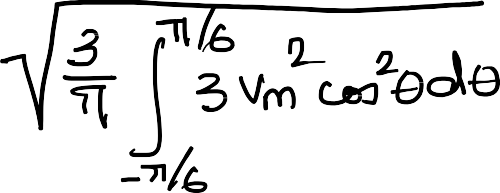 √(3/π ∫_{-π/6}^{π/6} 3 Vm² cos²θdθ)